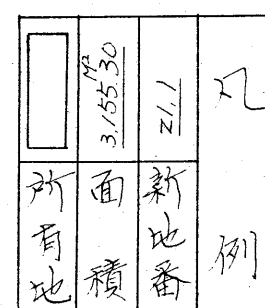 凡例
新地番 21.1
面積 3,155.30 M²
所有地